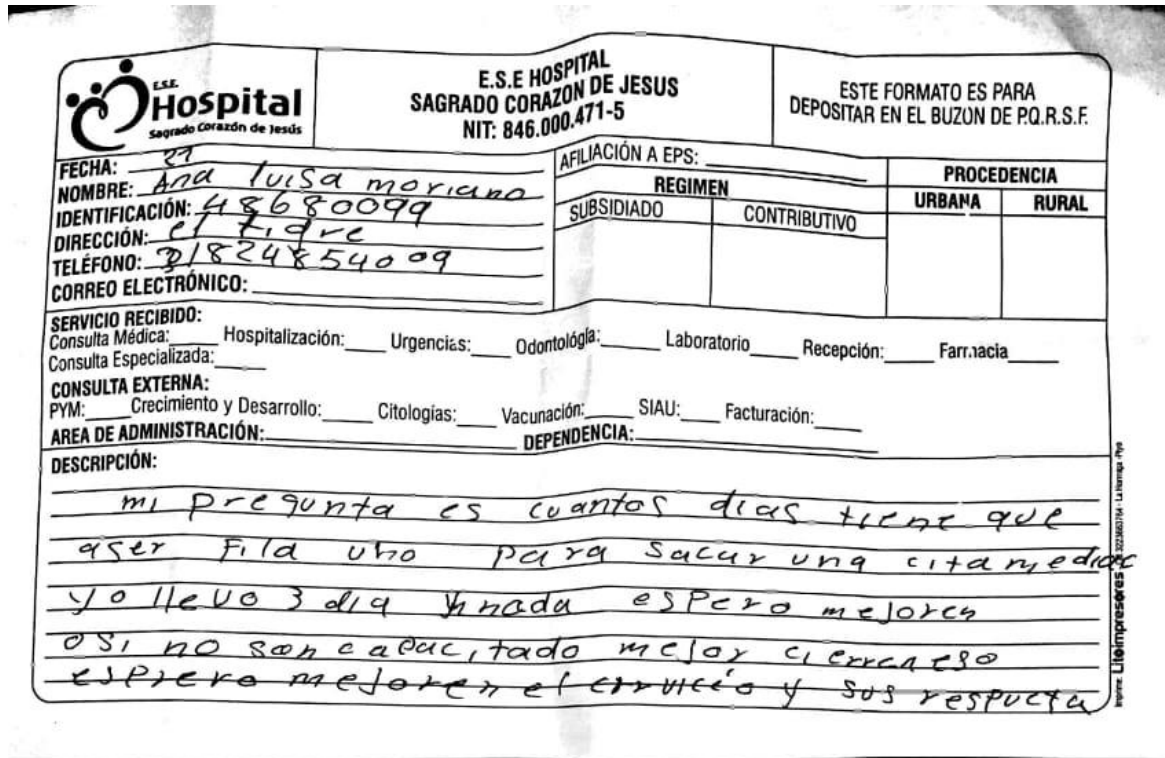 E.S.E.
Hospital
Sagrado Corazón de Jesús
E.S.E HOSPITAL
SAGRADO CORAZON DE JESUS
NIT: 846.000.471-5
ESTE FORMATO ES PARA
DEPOSITAR EN EL BUZON DE P.Q.R.S.F.
FECHA:
NOMBRE: Ana luisa moriano
IDENTIFICACIÓN: 48680099
DIRECCIÓN: el tigre
TELÉFONO: 31824854009
CORREO ELECTRÓNICO:
AFILIACIÓN A EPS:
REGIMEN
SUBSIDIADO CONTRIBUTIVO
PROCEDENCIA
URBANA RURAL
SERVICIO RECIBIDO:
Consulta Médica: Hospitalización: Urgencias: Odontológía: Laboratorio Recepción: Farmacia
Consulta Especializada:
CONSULTA EXTERNA:
PYM: Crecimiento y Desarrollo: Citologías: Vacunación: SIAU: Facturación:
AREA DE ADMINISTRACIÓN: DEPENDENCIA:
DESCRIPCIÓN:
mi pregunta es cuantos dias tiene que
aser fila uno para sacar una cita medica
yo llevo 3 dia y nada espero mejoren
o si no son capacitado mejor cierren eso
espero mejoren el y sus respucta
Imprime: Litoimpresores